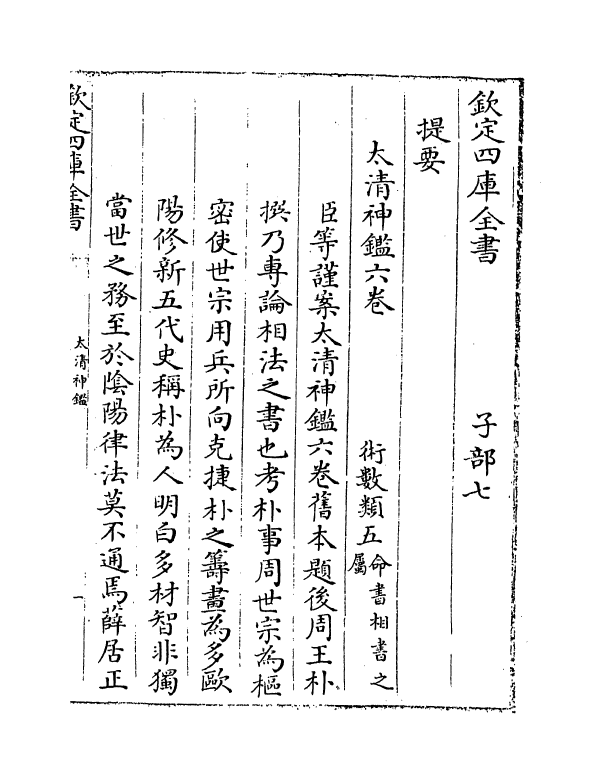 欽定四庫全書　子部七
提要
太清神鑑六卷　術數類五命書相書之屬
臣等謹案太清神鑑六卷舊本題後周王朴
撰乃專論相法之書也考朴事周世宗為樞
密使世宗用兵所向克捷朴之籌畫為多歐
陽修新五代史稱朴為人明白多材智非獨
當世之務至於陰陽律法莫不通焉薛居正
欽定四庫全書
太清神鑑
一